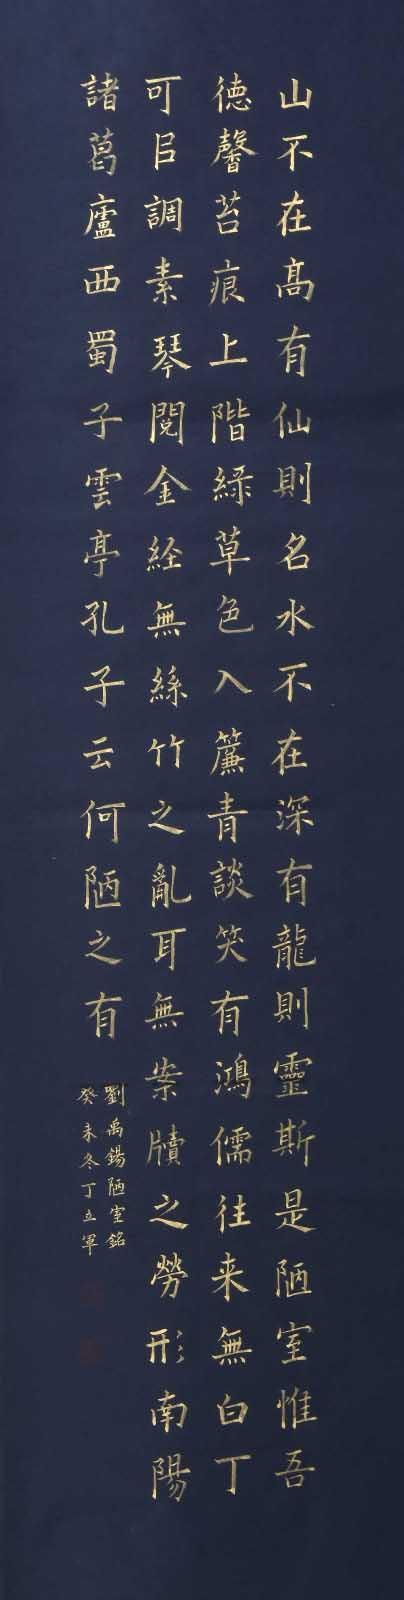 山不在髙有仙則名水不在深有龍則靈斯是陋室惟吾
德馨苔痕上階緑草色入簾青談笑有鴻儒往来無白丁
可㠯調素琴閱金經無絲竹之亂耳無案牘之勞形南陽
諸葛廬西蜀子雲亭孔子云何陋之有
劉禹錫陋室銘
癸未冬丁立軍